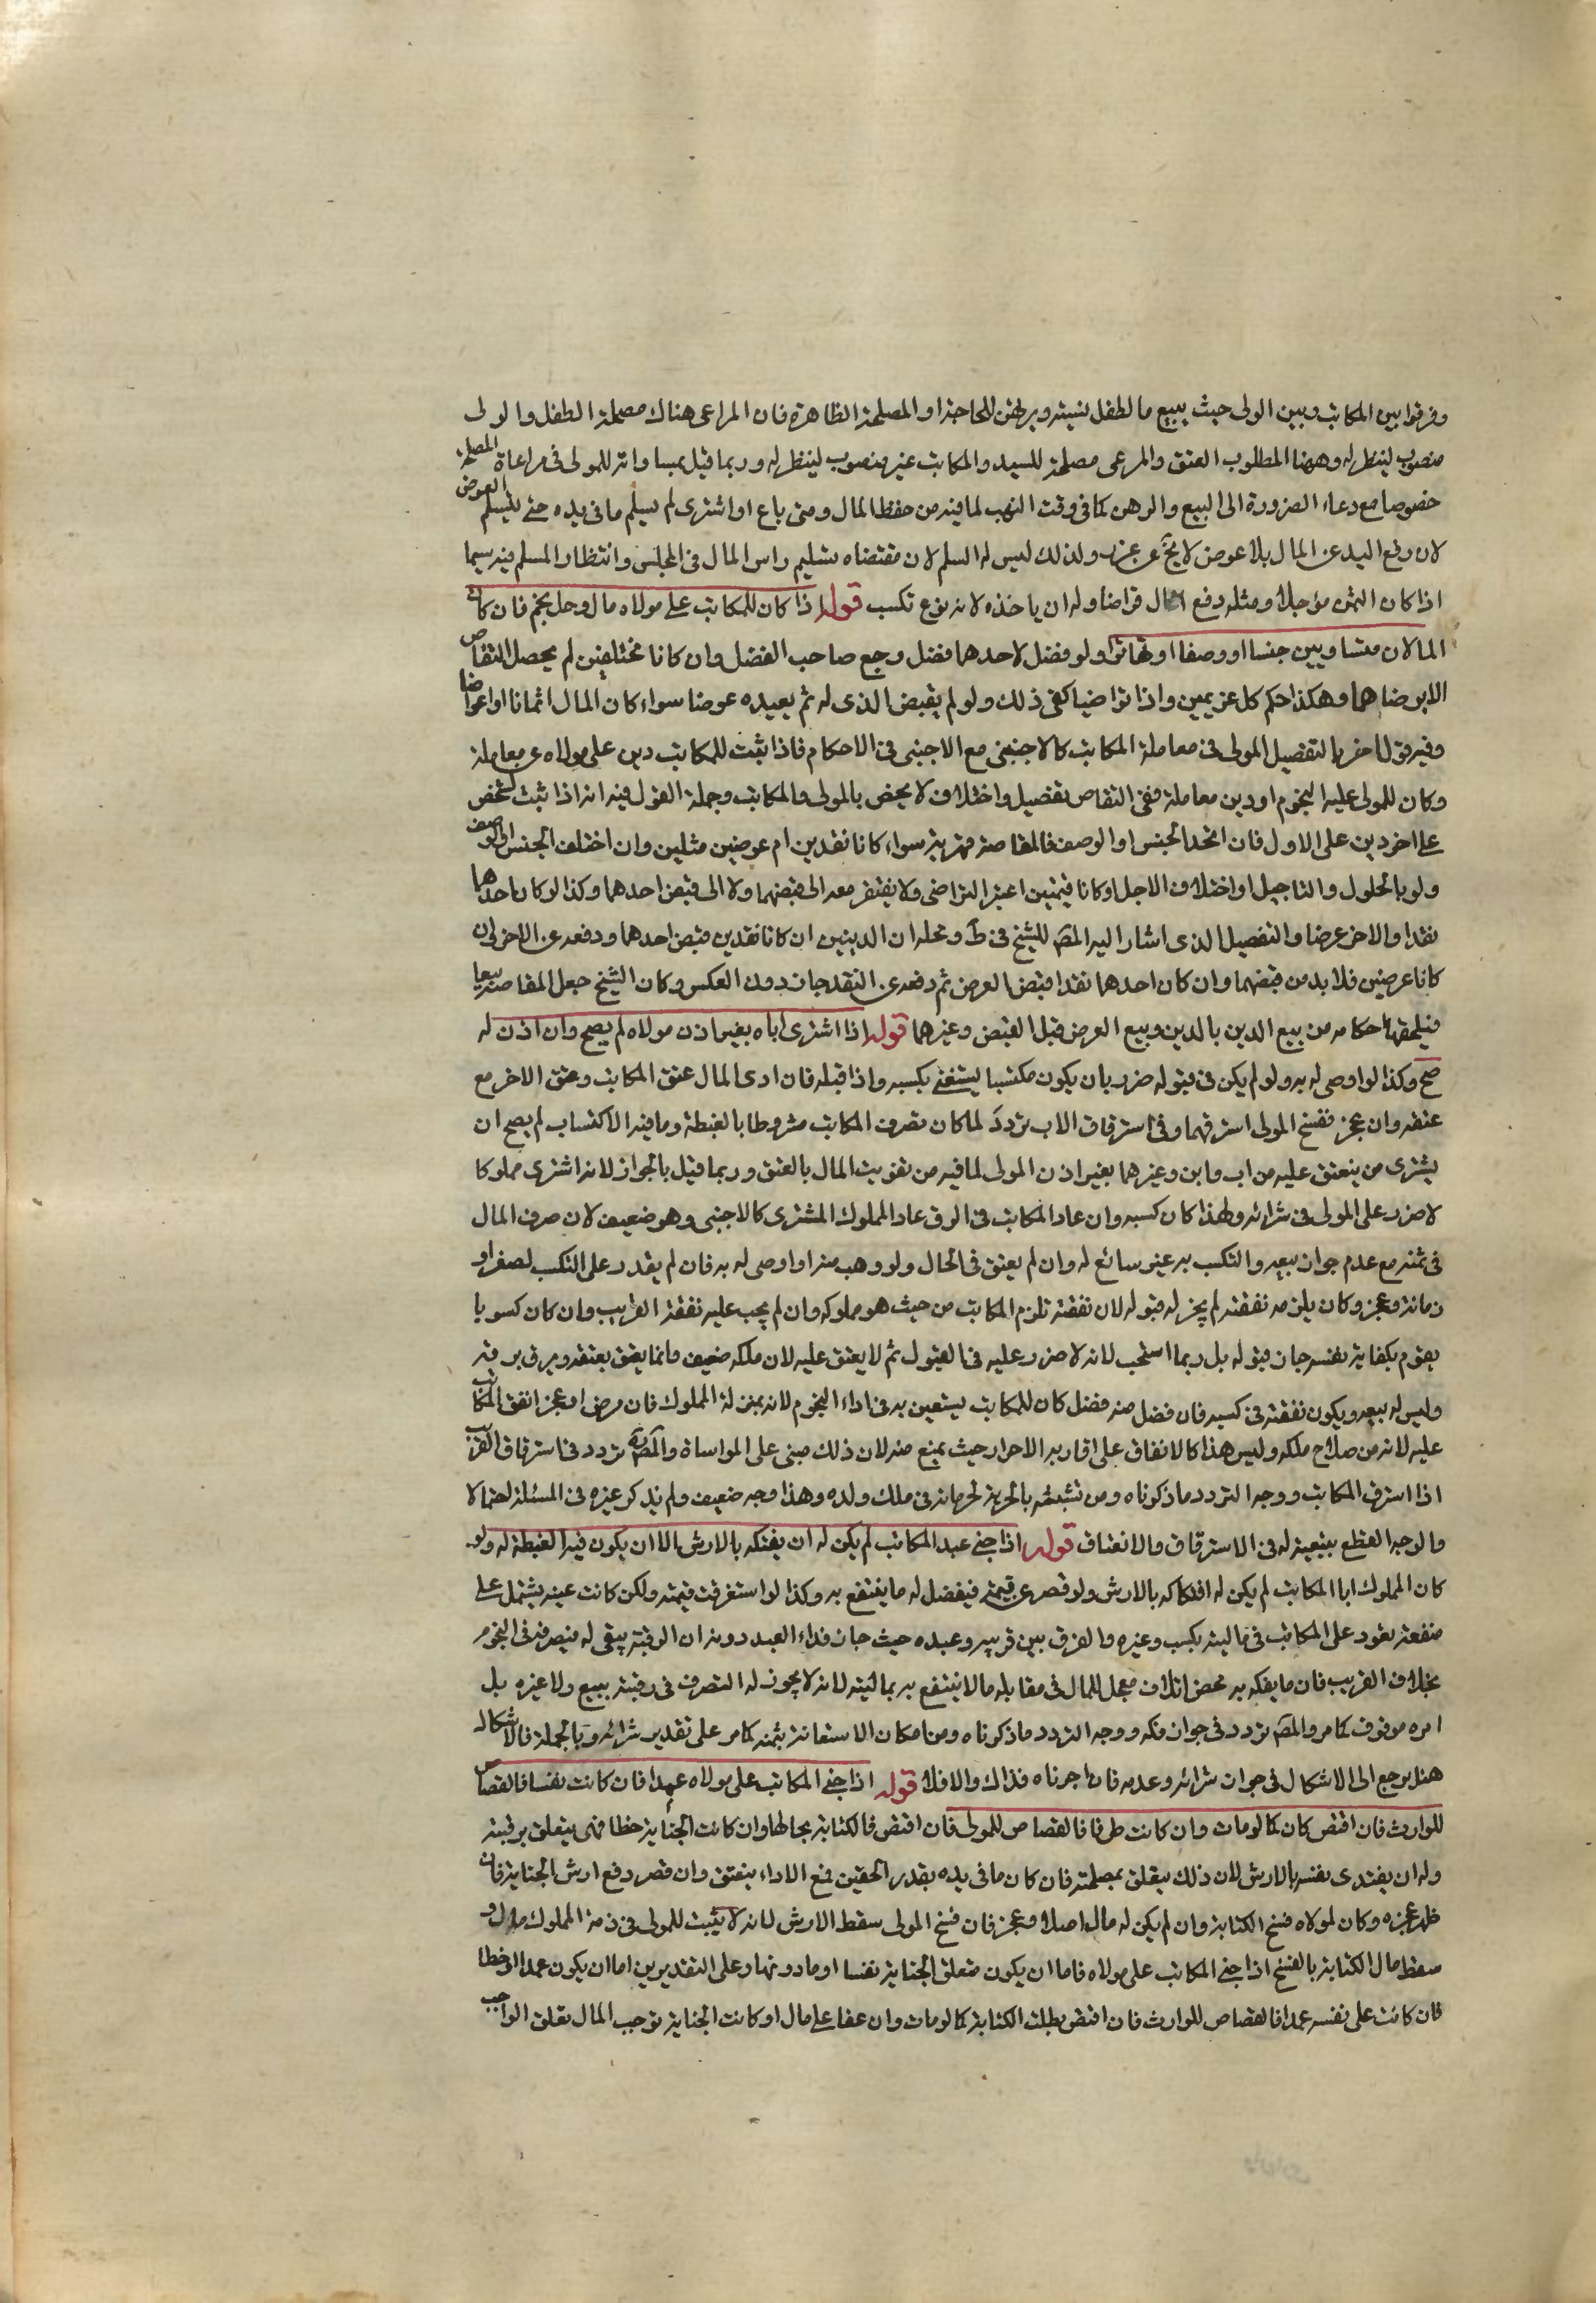 وفرقوا بين المكاتب وبين الولى حيث يبيع مال الطفل نسيئة ويرتهن للحاجة او المصلحة الظاهرة فان المراعى هناك مصلحة الطفل والولى
منصوب لينظر له وههنا المطلوب العتق والمرعى مصلحة للسيد والمكاتب غير منصوب لينظر له وربما قيل بمساواته للمولى فى مراعاة المصلحة
خصوصا مع دعاء الضرورة الى البيع والرهن كما فى وقت النهب لما فيه من حفظ المال ومتى باع او اشترى لم يسلم ما فى يده حتى يتسلم العوض
لان رفع اليد عن المال بلا عوض لا يخ عن غرر ولذلك ليس له السلم لان مقتضاه تسليم راس المال فى المجلس وانتظار المسلم فيه سيما
اذا كان الثمن مؤجلا ومثله دفع المال قراضا وله ان ياخذه لانه نوع تكسب قوله اذا كان للمكاتب على مولاه مال وحل نجم فان كان
المالان متساويين جنسا او وصفا تهاترا ولو فضل لاحدهما فضل رجع صاحب الفضل وان كانا مختلفين لم يحصل التقاص
الا برضاهما وهكذا حكم كل غريمين واذا تراضيا كفى ذلك ولو لم يقبض الذى له ثم يعيده عوضا سواء كان المال اثمانا او اعواضا
وفيه قول اخر بالتفصيل المولى فى معاملة المكاتب كالاجنبى مع الاجنبى فى الاحكام فاذا ثبت للمكاتب دين على مولاه عن معاملة
وكان للمولى عليه النجوم او دين معاملة ففى التقاص تفصيل واختلاف لا يخص بالمولى والمكاتب وجملة القول فيه انه اذا ثبت لشخص
على اخر دين على الاول فان اتحد الجنس او الوصف فالمقاصة قهرية سواء كانا نقدين ام عوضين مثلين وان اختلف الجنس او الوصف
ولو بالحلول والتاجيل او اختلاف الاجل او كانا قيميين اعتبر التراضى ولا يفتقر معه الى قبضهما ولا الى قبض احدهما وكذا لو كان احدهما
نقدا والاخر عرضا والتفصيل الذى اشار اليه المص للشيخ فى ط ومحله ان الدينين ان كانا نقدين قبض احدهما ودفعه عن الاخر وان
كانا عرضين فلا بد من قبضهما وان كان احدهما نقدا قبض العرض ثم دفعه عن النقد جاز دون العكس وكان الشيخ جعل المقاصة بيعا
فيلحقها احكامه من بيع الدين بالدين وبيع العرض قبل القبض وغيرهما قوله اذا اشترى اباه بغير اذن مولاه لم يصح وان اذن له
صح وكذا لو اوصى له به ولو لم يكن فى قبوله ضرر بان يكون مكتسبا يستغنى بكسبه واذا قبله فان ادى المال عتق المكاتب وعتق الاخر مع
عتقه وان عجز ففسخ المولى استرقهما وفى استرقاق الاب تردد لما كان تصرف المكاتب مشروطا بالغبطة وما فيه الاكتساب لم يصح ان
يشترى من ينعتق عليه من اب وابن وغيرهما بغير اذن المولى لما فيه من تفويت المال بالعتق وربما قيل بالجواز لانه اشترى مملوكا
لا ضرر على المولى فى شرائه ولهذا كان كسبه وان عاد المكاتب فى الرق عاد المملوك المشترى كالاجنبى وهو ضعيف لان صرف المال
فى ثمنه مع عدم جواز بيعه والتكسب به غير سائغ له وان لم يعتق فى الحال ولو وهب منه او اوصى له به فان لم يقدر على التكسب لصغر او
زمانة وعجز وكان يلزمه نفقته لم يجز له قبوله لان نفقته تلزم المكاتب من حيث هو مملوكه وان لم يجب عليه نفقة القريب وان كان كسوبا
يقوم بكفاية نفسه جاز قبوله بل ربما استحب لانه لا ضرر عليه فى القبول ثم لا يعتق عليه لان ملكه ضعيف وانما يعتق بعتقه ويرق برقه
وليس له بيعه ويكون نفقته فى كسبه فان فضل منه فضل كان للمكاتب يستعين به فى اداء النجوم لانه بمنزلة المملوك فان مرض او عجز انفق المكاتب
عليه لانه من صلاح ملكه وليس هذا كالانفاق على اقاربه الاحرار حيث يمنع منه لان ذلك مبنى على المواساة والمص تردد فى استرقاق القريب
اذا استرق المكاتب ووجه التردد ما ذكرناه ومن تشبثه بالحرية لجريانه فى ملك ولده وهذا وجه ضعيف ولم يذكر غيره فى المسئلة احتمالا
والوجه القطع بتبعيته له فى الاسترقاق والانعتاق قوله اذا جنى عبد المكاتب لم يكن له ان يفتكه بالارش الا ان يكون فيه الغبطة له ولو
كان المملوك ابا المكاتب لم يكن له افتكاكه بالارش ولو قصر عن قيمته فيفضل له ما ينتفع به وكذا لو استغرقت قيمته ولكن كانت عينه يشتمل على
منفعة تعود على المكاتب فى ماليته بكسب وغيره والفرق بين قريبه وعبده حيث جاز فداء العبد دونه ان الرقبة يبقى له فيصرفه فى النجوم
بخلاف القريب فان ما يفكه به محض اتلاف معجل للمال فى مقابله ما لا ينتفع به بماليته لانه لا يجوز له التصرف فى رقبته ببيع ولا غيره بل
امره موقوف كما مر والمص تردد فى جواز فكه ووجه التردد ما ذكرناه ومن امكان الاستعانة بثمنه كما مر على تقدير شرائه وبالجملة فالاشكال
هنا يرجع الى الاشكال فى جواز شرائه وعدمه فان اجزناه فذاك والا فلا قوله اذا جنى المكاتب على مولاه عمدا فان كانت نفسا فالقصاص
للوارث فان اقتص كان كما لو مات وان كانت طرفا فالقصاص للمولى فان اقتص فالكتابة بحالها وان كانت الجناية خطا فهى يتعلق برقبته
وله ان يفتدى نفسه بالارش لان ذلك يتعلق بمصلحته فان كان ما فى يده بقدر الحقين فمع الاداء ينعتق وان قصر دفع ارش الجناية فان
ظهر عجزه وكان لمولاه فسخ الكتابة وان لم يكن له مال اصلا وعجز فان فسخ المولى سقط الارش لانه لا يثبت للمولى فى ذمة المملوك مال و
سقط مال الكتابة بالفسخ اذا جنى المكاتب على مولاه فاما ان يكون متعلق الجناية نفسا او ما دونها وعلى التقديرين اما ان يكون عمدا او خطا
فان كانت على نفسه عمدا فالقصاص للوارث فان اقتص بطلت الكتابة كما لو مات وان عفا على مال او كانت الجناية توجب المال تعلق الواجب